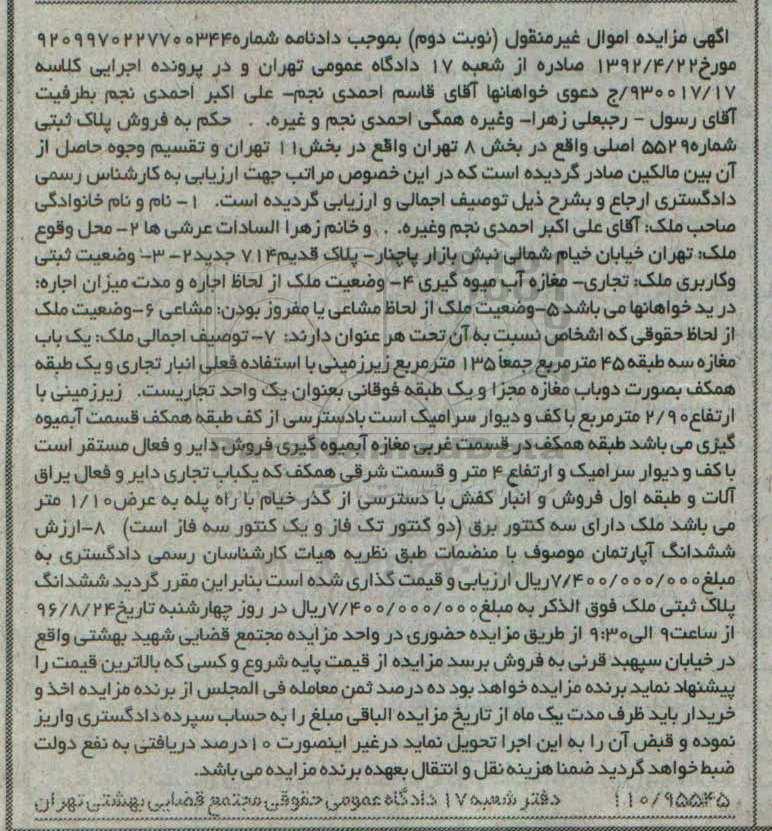 اگهی مزایده اموال غیرمنقول (نوبت دوم) بموجب دادنامه شماره۹۲۰۹۹۷۰۲۲۷۷۰۰۳۴۴
مورخ۱۳۹۲/۴/۲۲ صادره از شعبه ۱۷ دادگاه عمومی تهران و در پرونده اجرایی کلاسه
۹۳۰۰۱۷/۱۷/ج دعوی خواهانها آقای قاسم احمدی نجم- علی اکبر احمدی نجم بطرفیت
آقای رسول - رجبعلی زهرا- وغیره همگی احمدی نجم و غیره. . حکم به فروش پلاک ثبتی
شماره۵۵۲۹ اصلی واقع در بخش ۸ تهران واقع در بخش۱۱ تهران و تقسیم وجوه حاصل از
آن بین مالکین صادر گردیده است که در این خصوص مراتب جهت ارزیابی به کارشناس رسمی
دادگستری ارجاع و بشرح ذیل توصیف اجمالی و ارزیابی گردیده است. ۱- نام و نام خانوادگی
صاحب ملک: آقای علی اکبر احمدی نجم وغیره. . و خانم زهرا السادات عرشی ها ۲- محل وقوع
ملک: تهران خیابان خیام شمالی نبش بازار پاچنار- پلاک قدیم۷۱۴ جدید۲- ۳- وضعیت ثبتی
وکاربری ملک: تجاری- مغازه آب میوه گیری ۴- وضعیت ملک از لحاظ اجاره و مدت میزان اجاره:
در ید خواهانها می باشد ۵-وضعیت ملک از لحاظ مشاعی یا مفروز بودن: مشاعی ۶-وضعیت ملک
از لحاظ حقوقی که اشخاص نسبت به آن تحت هر عنوان دارند: ۷- توصیف اجمالی ملک: یک باب
مغازه سه طبقه ۴۵ مترمربع جمعاً ۱۳۵ مترمربع زیرزمینی با استفاده فعلی انبار تجاری و یک طبقه
همکف بصورت دوباب مغازه مجزا و یک طبقه فوقانی بعنوان یک واحد تجاریست. زیرزمینی با
ارتفاع۲/۹۰ مترمربع با کف و دیوار سرامیک است بادسترسی از کف طبقه همکف قسمت آبمیوه
گیری می باشد طبقه همکف در قسمت غربی مغازه آبمیوه گیری فروش دایر و فعال مستقر است
با کف و دیوار سرامیک و ارتفاع ۴ متر و قسمت شرقی همکف که یکباب تجاری دایر و فعال یراق
آلات و طبقه اول فروش و انبار کفش با دسترسی از گذر خیام با راه پله به عرض۱/۱۰ متر
می باشد ملک دارای سه کنتور برق (دو کنتور تک فاز و یک کنتور سه فاز است) ۸-ارزش
ششدانگ آپارتمان موصوف با منضمات طبق نظریه هیات کارشناسان رسمی دادگستری به
مبلغ۷/۴۰۰/۰۰۰/۰۰۰ریال ارزیابی و قیمت گذاری شده است بنابراین مقرر گردید ششدانگ
پلاک ثبتی ملک فوق الذکر به مبلغ۷/۴۰۰/۰۰۰/۰۰۰ریال در روز چهارشنبه تاریخ۹۶/۸/۲۴
از ساعت۹ الی۹:۳۰ از طریق مزایده حضوری در واحد مزایده مجتمع قضایی شهید بهشتی واقع
در خیابان سپهبد قرنی به فروش برسد مزایده از قیمت پایه شروع و کسی که بالاترین قیمت را
پیشنهاد نماید برنده مزایده خواهد بود ده درصد ثمن معامله فی المجلس از برنده مزایده اخذ و
خریدار باید ظرف مدت یک ماه از تاریخ مزایده الباقی مبلغ را به حساب سپرده دادگستری واریز
نموده و قبض آن را به این اجرا تحویل نماید درغیر اینصورت ۱۰درصد دریافتی به نفع دولت
ضبط خواهد گردید ضمنا هزینه نقل و انتقال بعهده برنده مزایده می باشد.
۱۱۰/۹۵۵۴۵ دفتر شعبه ۱۷ دادگاه عمومی حقوقی مجتمع قضایی بهشتی تهران